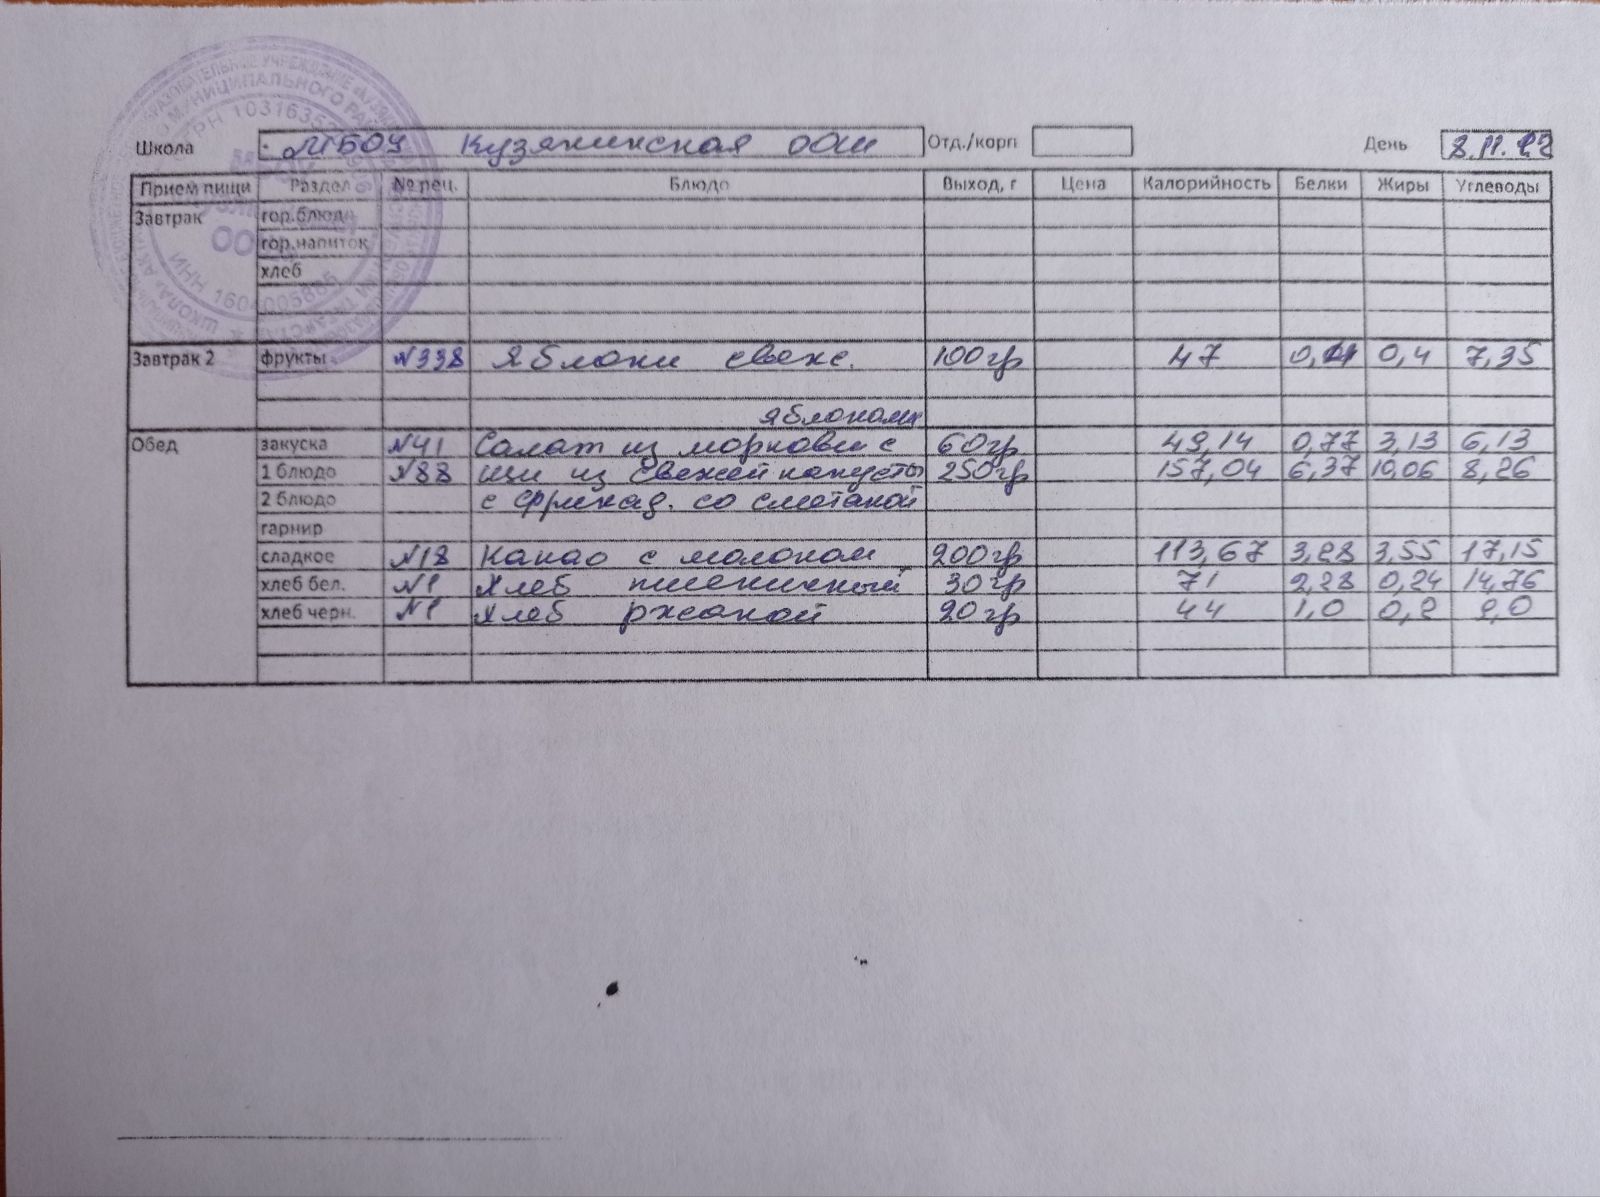 Школа МБОУ Кузякинская ООШ Отд./корп День 8.11.22
Прием пищи Раздел № рец. Блюдо Выход, г Цена Калорийность Белки Жиры Углеводы
Завтрак гор.блюдо
гор.напиток
хлеб
Завтрак 2 фрукты №338 Яблоки свеж. 100гр 47 0,4 7,35
яблоками
Обед закуска №41 Салат из моркови с 60гр 49,14 0,77 3,13 6,13
1 блюдо №88 Щи из свежей капусты 250гр 157,04 6,37 10,06 8,26
2 блюдо с фрикад. со сметаной
гарнир
сладкое №18 Какао с молоком 200гр 113,67 3,28 3,55 17,15
хлеб бел. №1 Хлеб пшеничный 30гр 71 2,28 0,24 14,76
хлеб черн. №1 Хлеб ржаной 20гр 44 1,0 0,2 9,0